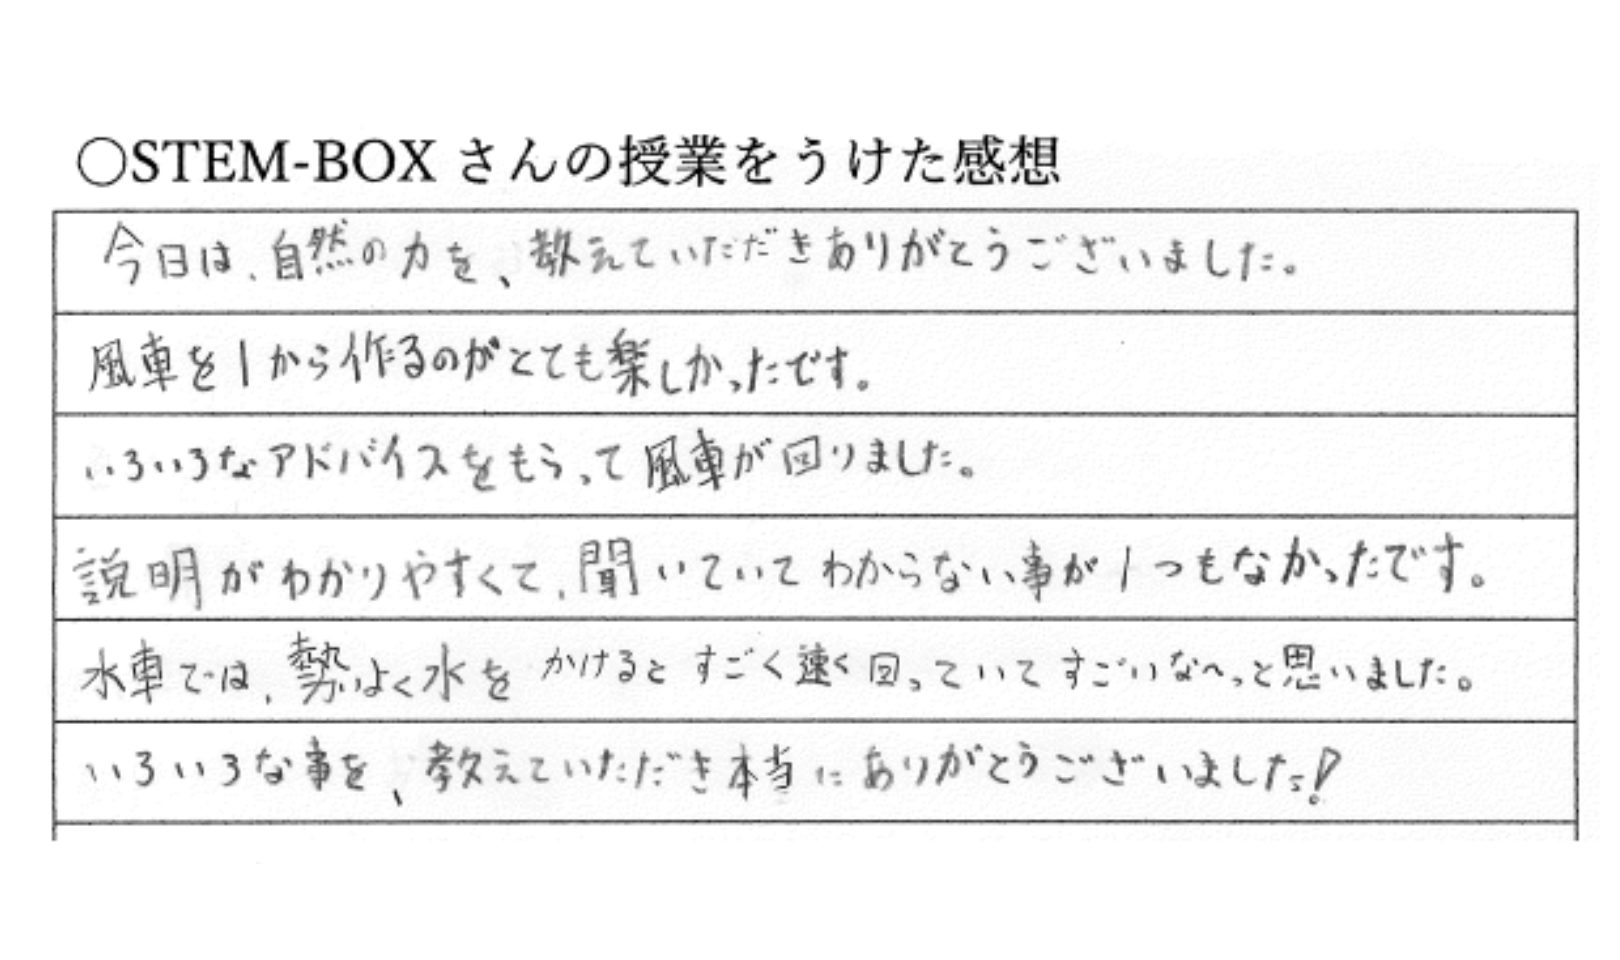 ○STEM-BOX さんの授業をうけた感想
今日は、自然の力を、教えていただきありがとうございました。
風車を1から作るのがとても楽しかったです。
いろいろなアドバイスをもらって風車が回りました。
説明がわかりやすくて、聞いていてわからない事が1つもなかったです。
水車では、勢いよく水をかけるとすごく速く回っていてすごいなへっと思いました。
いろいろな事を、教えていただき本当にありがとうございました!